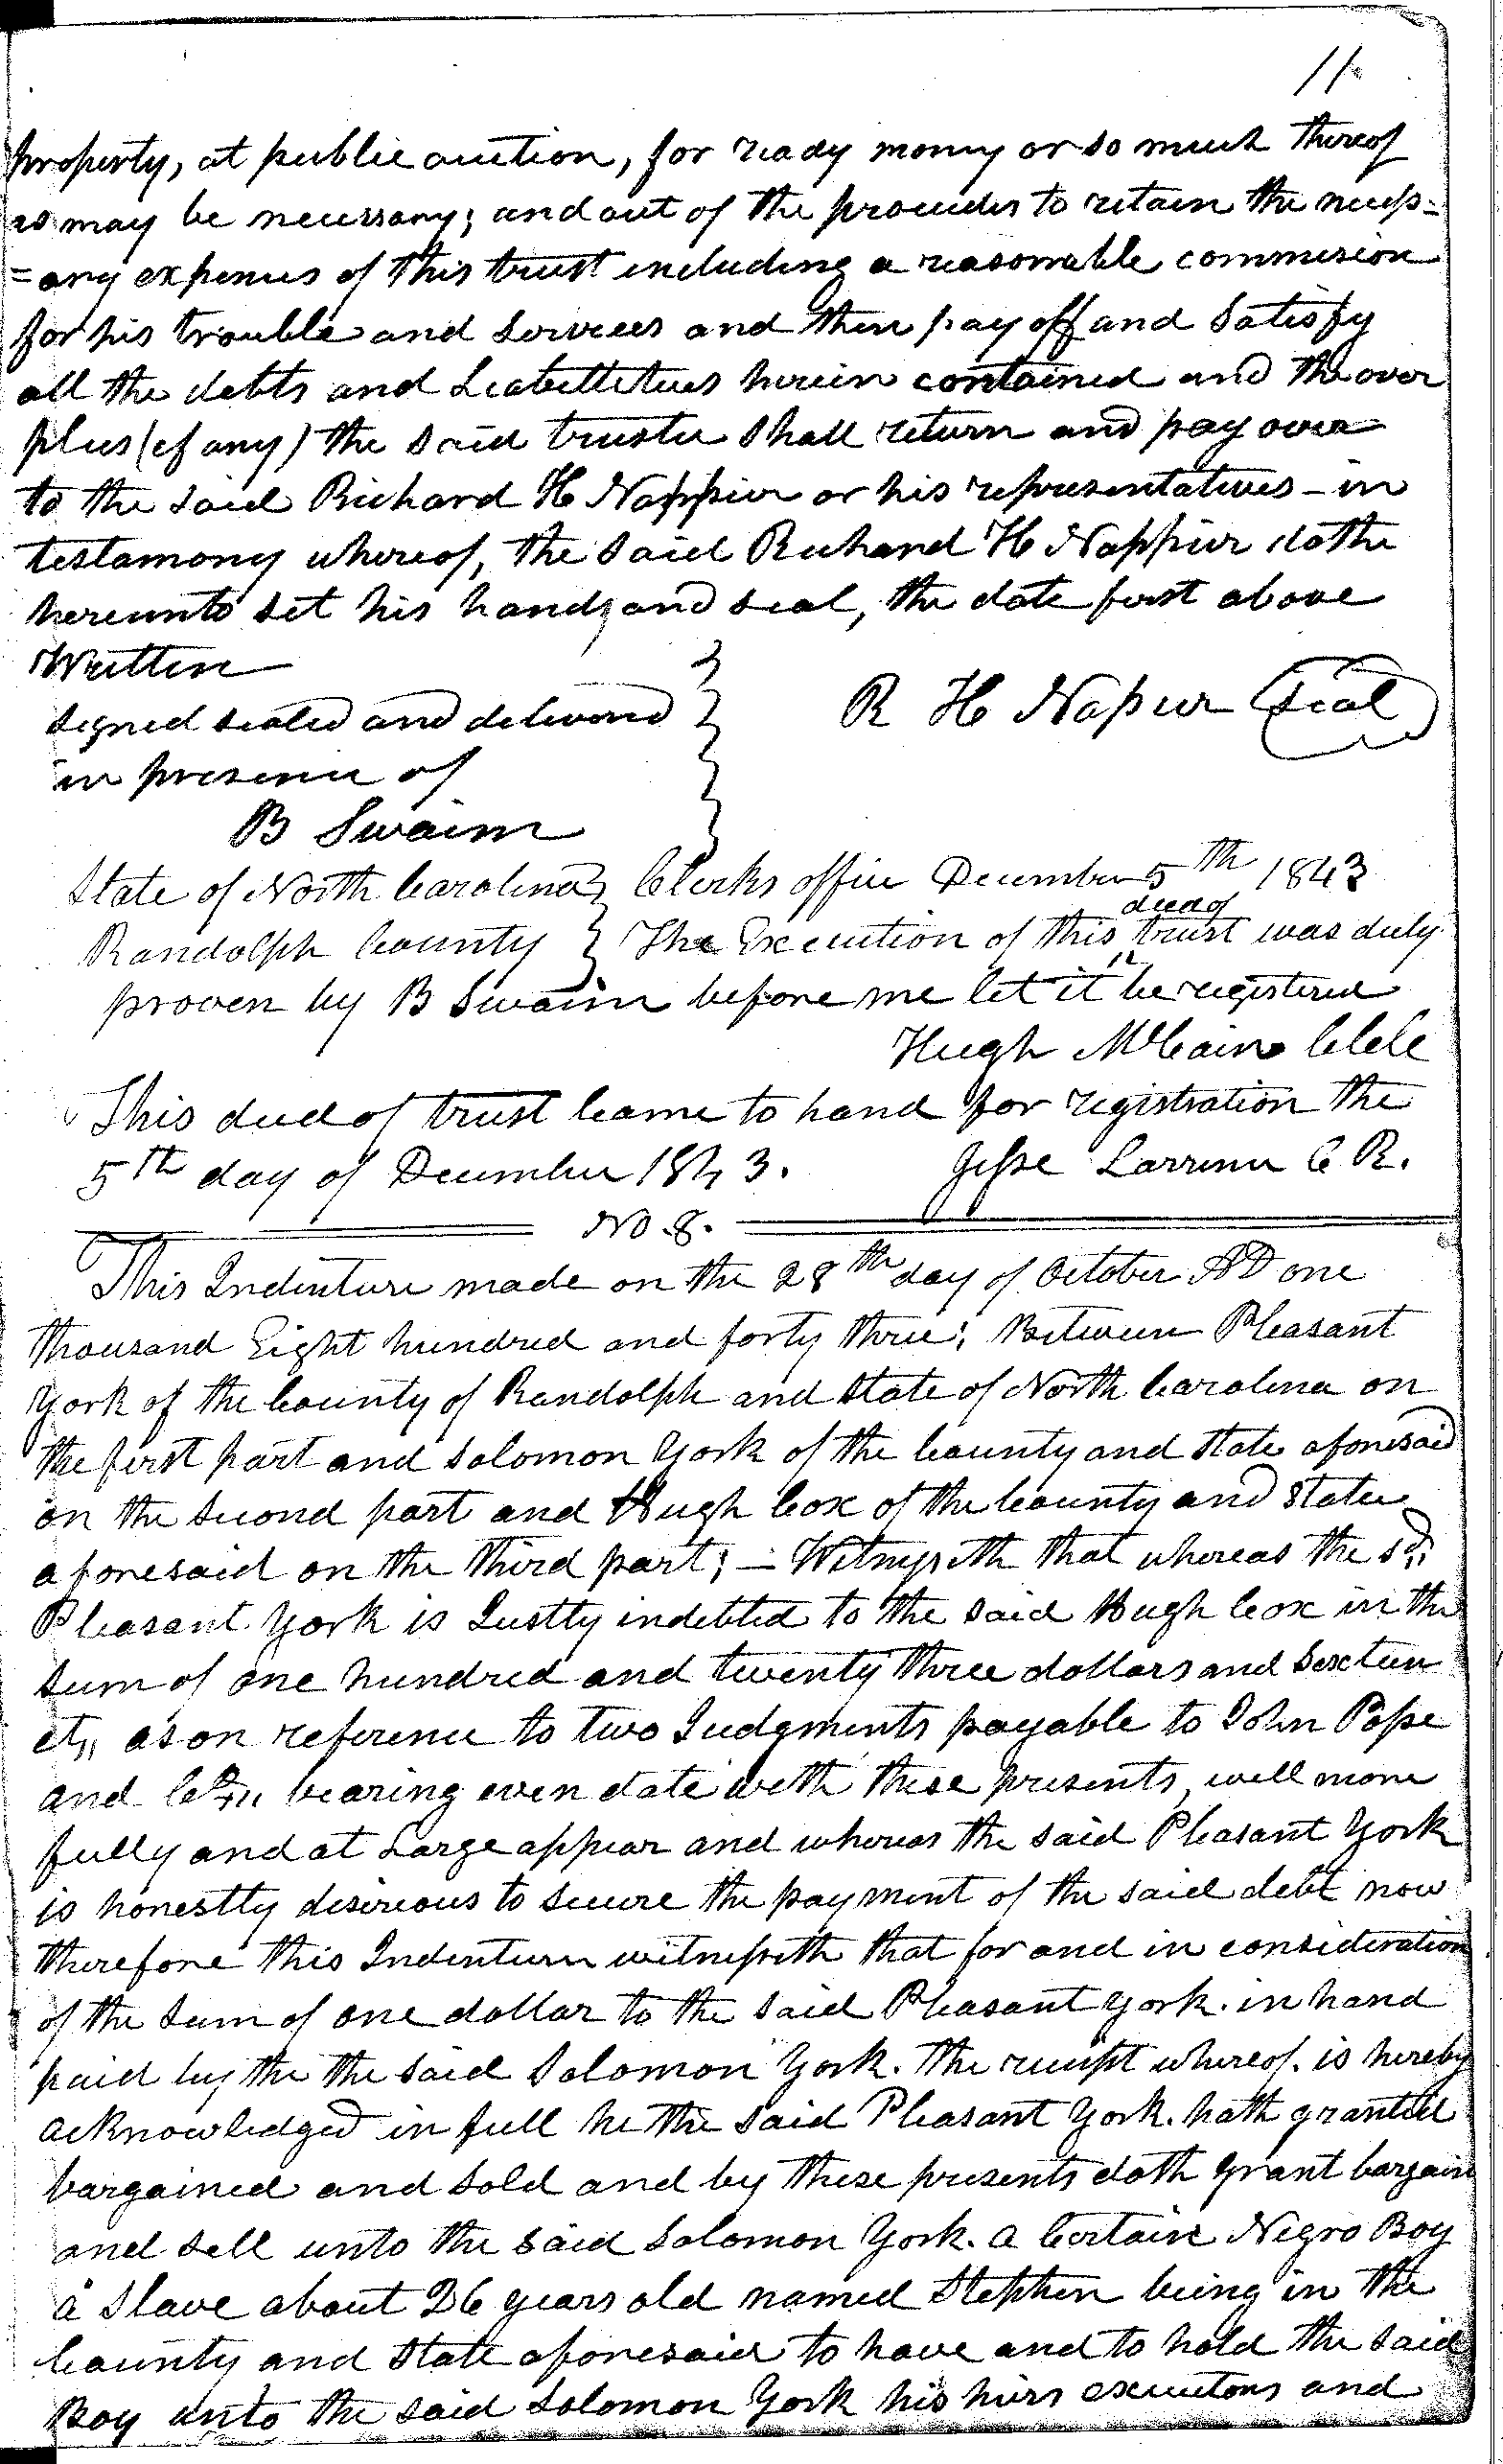 11.
property, at public auction, for ready money or so much thereof
as may be necessary; and out of the proceedes to retain the necess=
=ary expenses of this trust including a reasonable commission
for his trouble and Services and then pay off and Satisfy
all the debts and Liabillitues herein contained and the over
plus (if any) the said trustee shall return and pay over
to the said Richard H Nappier or his representatives - in
testamony whereof, the said Richard H Nappier dothe
hereunto set his hand, and seal, the date first above
Written
signed sealed and delivered
R H Napier Seal
in presence of
B Swaim
State of North Carolina Clerks office December 5th 1843
deed of
Randolph County The Execution of this trust was duly
proven by B Swaim before me let it be registered
Hugh McCain Clk
This deed of trust Came to hand for registration the
5th day of December 1843. Jesse Larrence C R.
No. 8.
This Indenture made on the 28th day of October AD one
thousand Eight hundred and forty three; Between Pleasant
York of the County of Randolph and State of North Carolina on
the first part and Solomon York of the County and State aforesaid
on the Second part and Hugh Cox of the County and State
aforesaid on the third part; - Witnesseth that whereas the sd.
Pleasant York is Justly indebted to the said Hugh Cox in the
Sum of one hundred and twenty three dollars and Sixteen
cts,, as on reference to two Judgments payable to John Pope
and Co,, bearing even date with these presents, will more
fully and at Large appear and whereas the said Pleasant York
is honestly desireous to Secure the payment of the said debt now
therefore this Indenture witnesseth that for and in consideration
of the Sum of one dollar to the said Pleasant York. in hand
paid by the the said Solomon York. the receipt whereof. is hereby
acknowledged in full he the said Pleasant York. hath granted
bargained and Sold and by these presents doth grant bargain
and sell unto the said Solomon York. a Certain Negro Boy
a Slave about 26 years old named Stephen being in the
County and State aforesaid to have and to hold the said
Boy unto the said Solomon York his heirs executors and